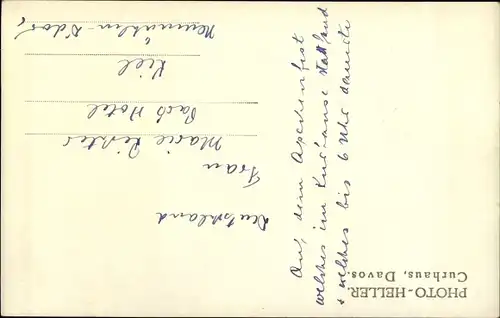 Auf dem Apachenfest
welches im Kurhause stattfand
+ welches bis 6 Uhr dauerte
PHOTO-HELLER,
Curhaus, Davos.
Deutschland
Frau
Marie Richter
Park Hotel
Kiel
Neumühlen-Ddorf